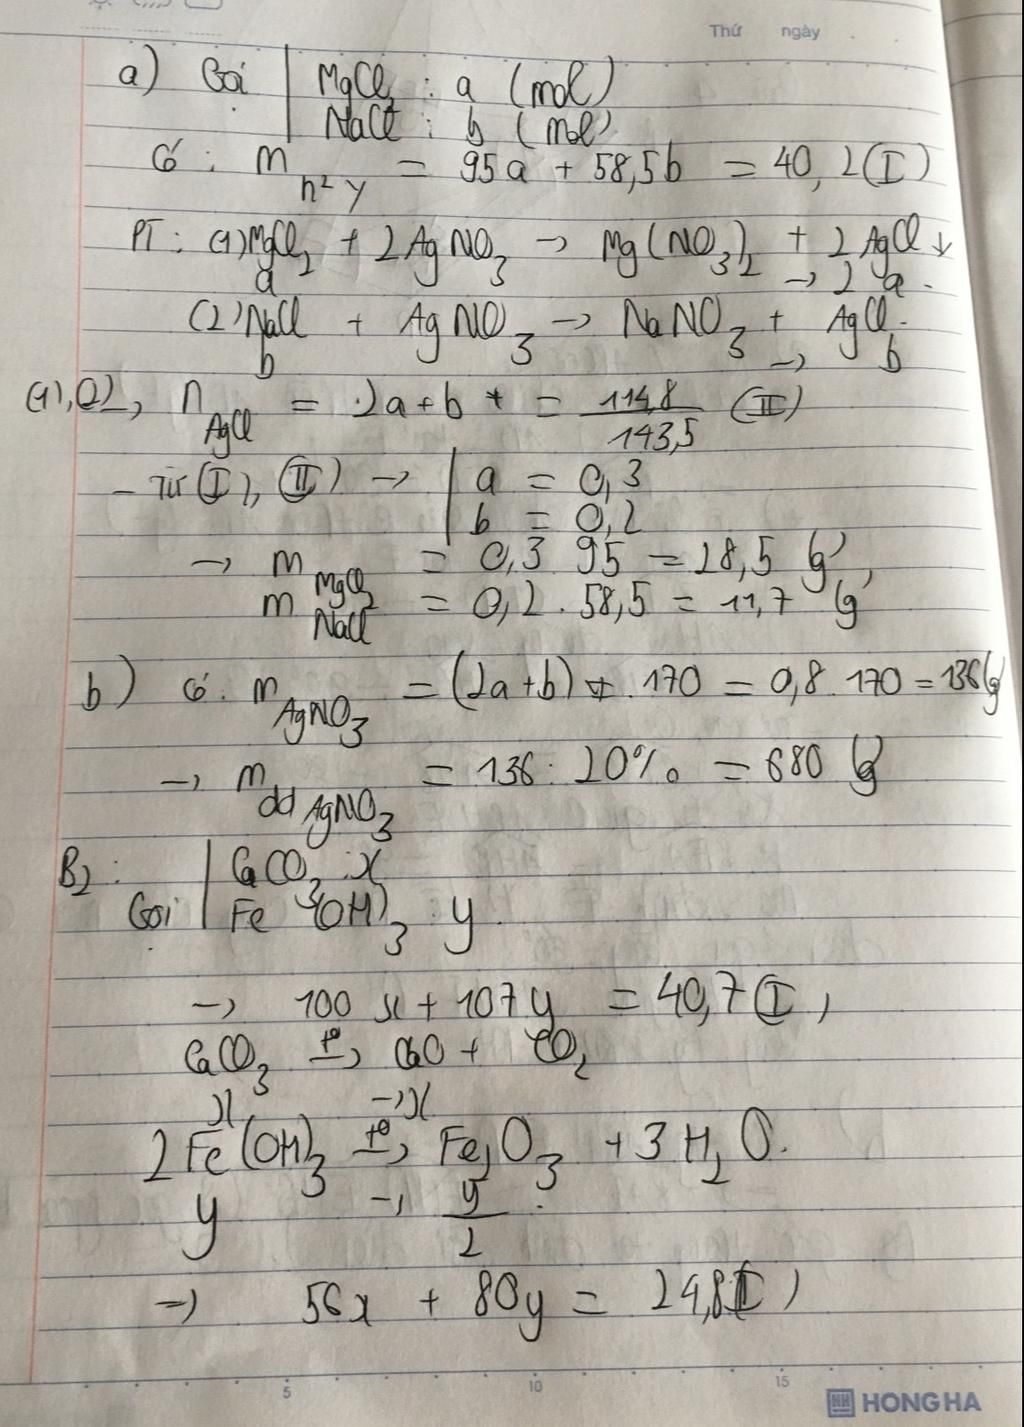 Thứ ngày
a) Gọi | MgCl2 : a (mol)
NaCl : b (mol)
Có : m h² Y = 95a + 58,5b = 40,2 (I)
PT : (1) MgCl2 + 2AgNO3 → Mg(NO3)2 + 2AgCl ↓
a → 2a.
(2) NaCl + AgNO3 → NaNO3 + AgCl.
b → b
(1),(2), n AgCl = 2a+b = 114,8/143,5 (II)
- Từ (I), (II) → | a = 0,3
b = 0,2
→ m MgCl2 = 0,3 95 = 28,5 g,
m NaCl = 0,2 . 58,5 = 11,7 g
b) Có. m AgNO3 = (2a+b) . 170 = 0,8 . 170 = 136 g
→ m dd AgNO3 = 136 : 20% = 680 g
B2 : | CaCO3 : x
Gọi | Fe(OH)3 y
→ 100x + 107y = 40,7 (I),
CaCO3 t° → CaO + CO2
x → x
2Fe(OH)3 t° → Fe2O3 + 3H2O.
y → y/2.
→ 56x + 80y = 24,8 (II)
5 10 15
HH HONG HA